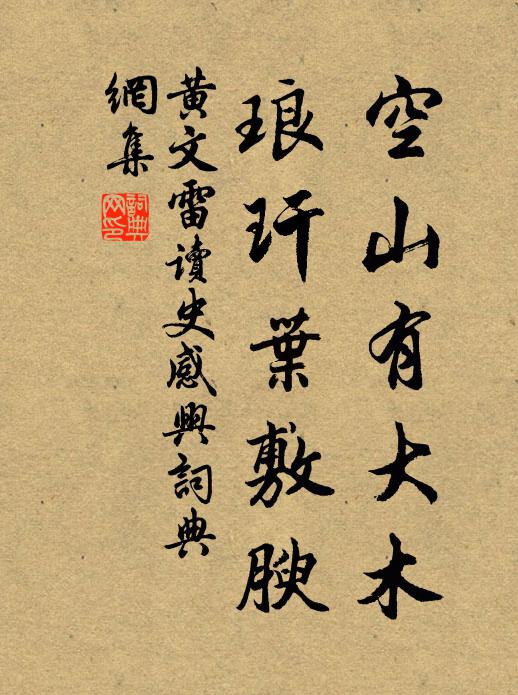 空山有大木
琅玕葉敷腴
黃文雷讀史感興詞典
網集
詞典网印